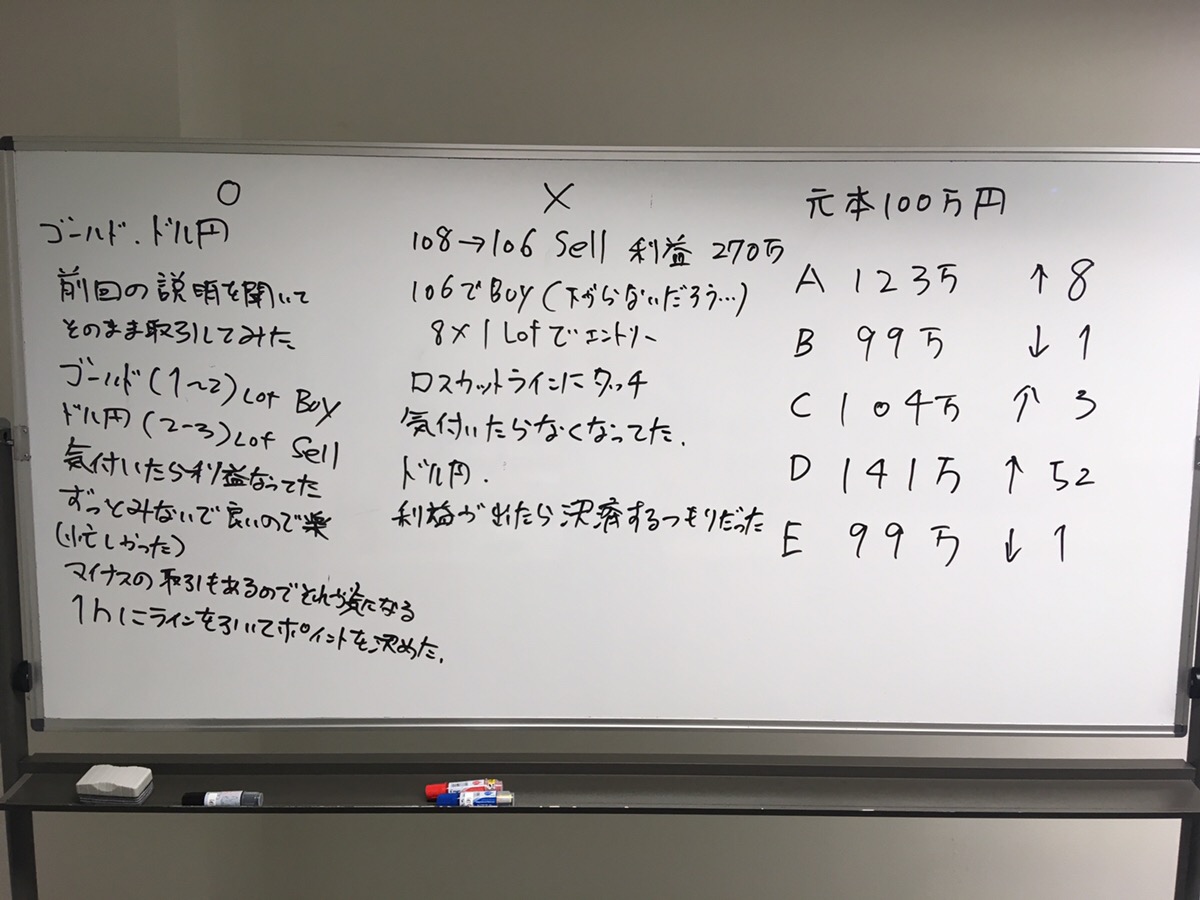 ○
ゴールド、ドル円
前回の説明を聞いて
そのまま取引してみた
ゴールド(1~2)Lot Boy
ドル円(2-3)Lot Sell
気付いたら利益なってた
ずっとみないで良いので楽
(忙しかった)
マイナスの取引もあるのでそれが気になる
1hにラインを引いてポイントを決めた.
×
108→106 Sell 利益 270万
106でBoy(下がらないだろう…)
8×1Lotでエントリー
ロスカットラインにタッチ
気付いたらなくなってた.
ドル円.
利益が出たら決済するつもりだった
元本100万円
A 123万 ↑8
B 99万 ↓1
C 104万 ↑3
D 141万 ↑52
E 99万 ↓1